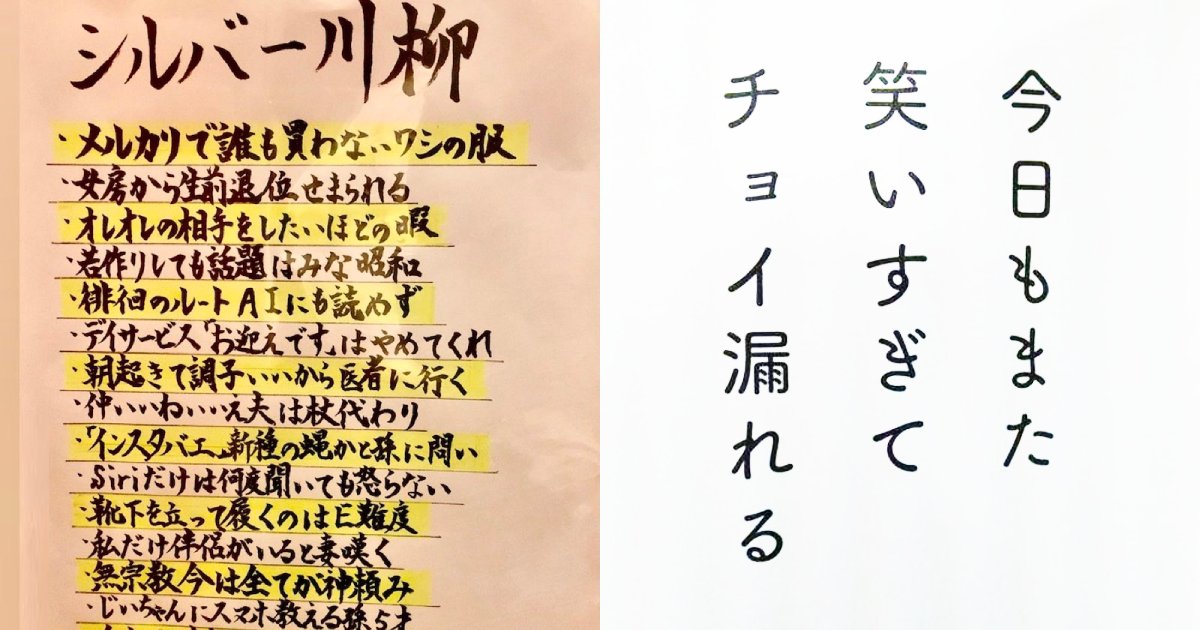 シルバー川柳
・メルカリで誰も買わないワシの服
・女房から生前退位せまられる
・オレオレの相手をしたいほどの暇
・若作りしても話題はみな昭和
・徘徊のルートAIにも読めず
・デイサービス「お迎えです」はやめてくれ
・朝起きて調子いいから医者に行く
・仲いいねいいえ夫は杖代わり
・「インスタバエ」新種の蝿かと孫に問い
・Siriだけは何度聞いても怒らない
・靴下を立って履くのはE難度
・私だけ伴侶がいると妻嘆く
・無宗教今は全てが神頼み
・じいちゃんにスマホ教える孫5才
今日もまた
笑いすぎて
チョイ漏れる